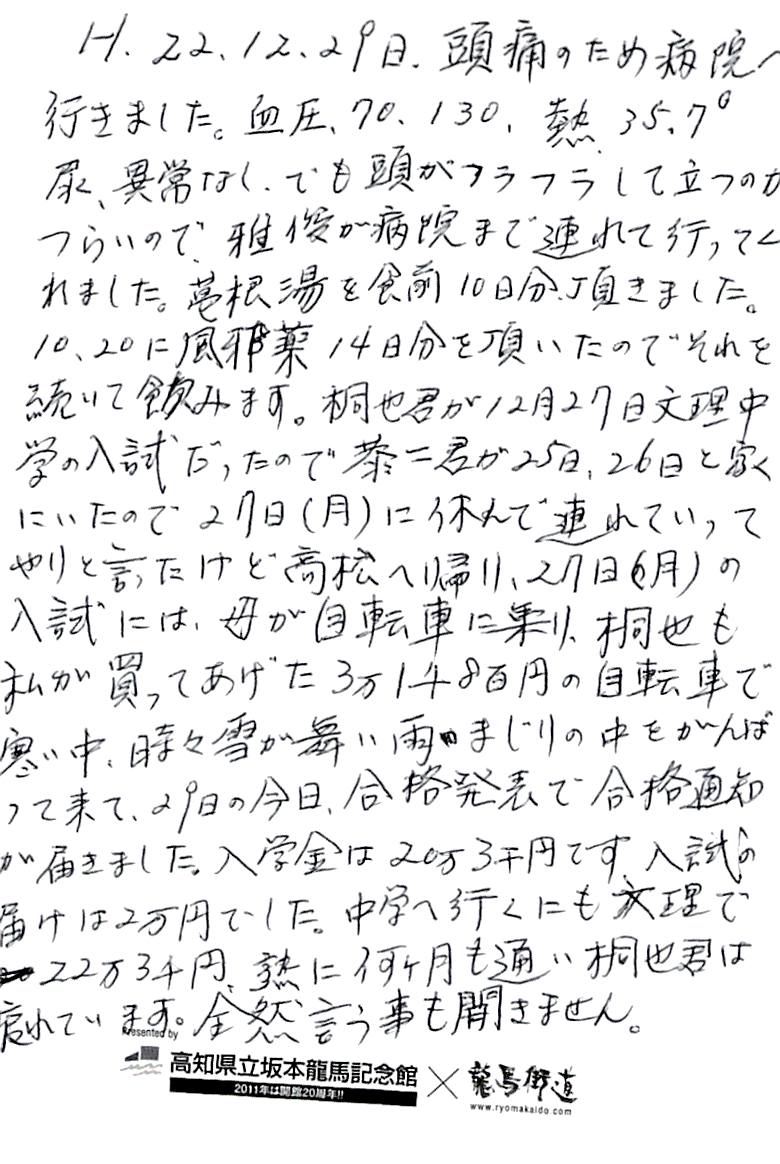 H.22.12.29日.頭痛のため病院へ
行きました。血圧、70.130.熱.35.7°
尿、異常なし.でも頭がフラフラして立つのが
つらいので、雅俊が病院まで連れて行ってく
れました。葛根湯を食前10日分、頂きました。
10.20に風邪薬14日分を頂いたのでそれを
続いて飲みます。桐也君が12月27日文理中
学の入試だったので泰二君が25日、26日と家
にいたので27日(月)に休んで連れていって
やりと言ったけど高松へ帰り、27日(月)の
入試には、母が自転車に乗り、桐也も
私が買ってあげた3万1480百円の自転車で
寒い中、時々雪が舞い雨まじりの中をがんば
って来て、29日の今日、合格発表で合格通知
が届きました。入学金は20万3千円です。入試の
届けは2万円でした。中学へ行くにも文理で
22万3千円、熱に何ヶ月も通い桐也君は
疲れています。全然言う事も聞きません。
Presented by
高知県立坂本龍馬記念館×龍馬街道
2011年は開館20周年!!
www.ryomakaido.com